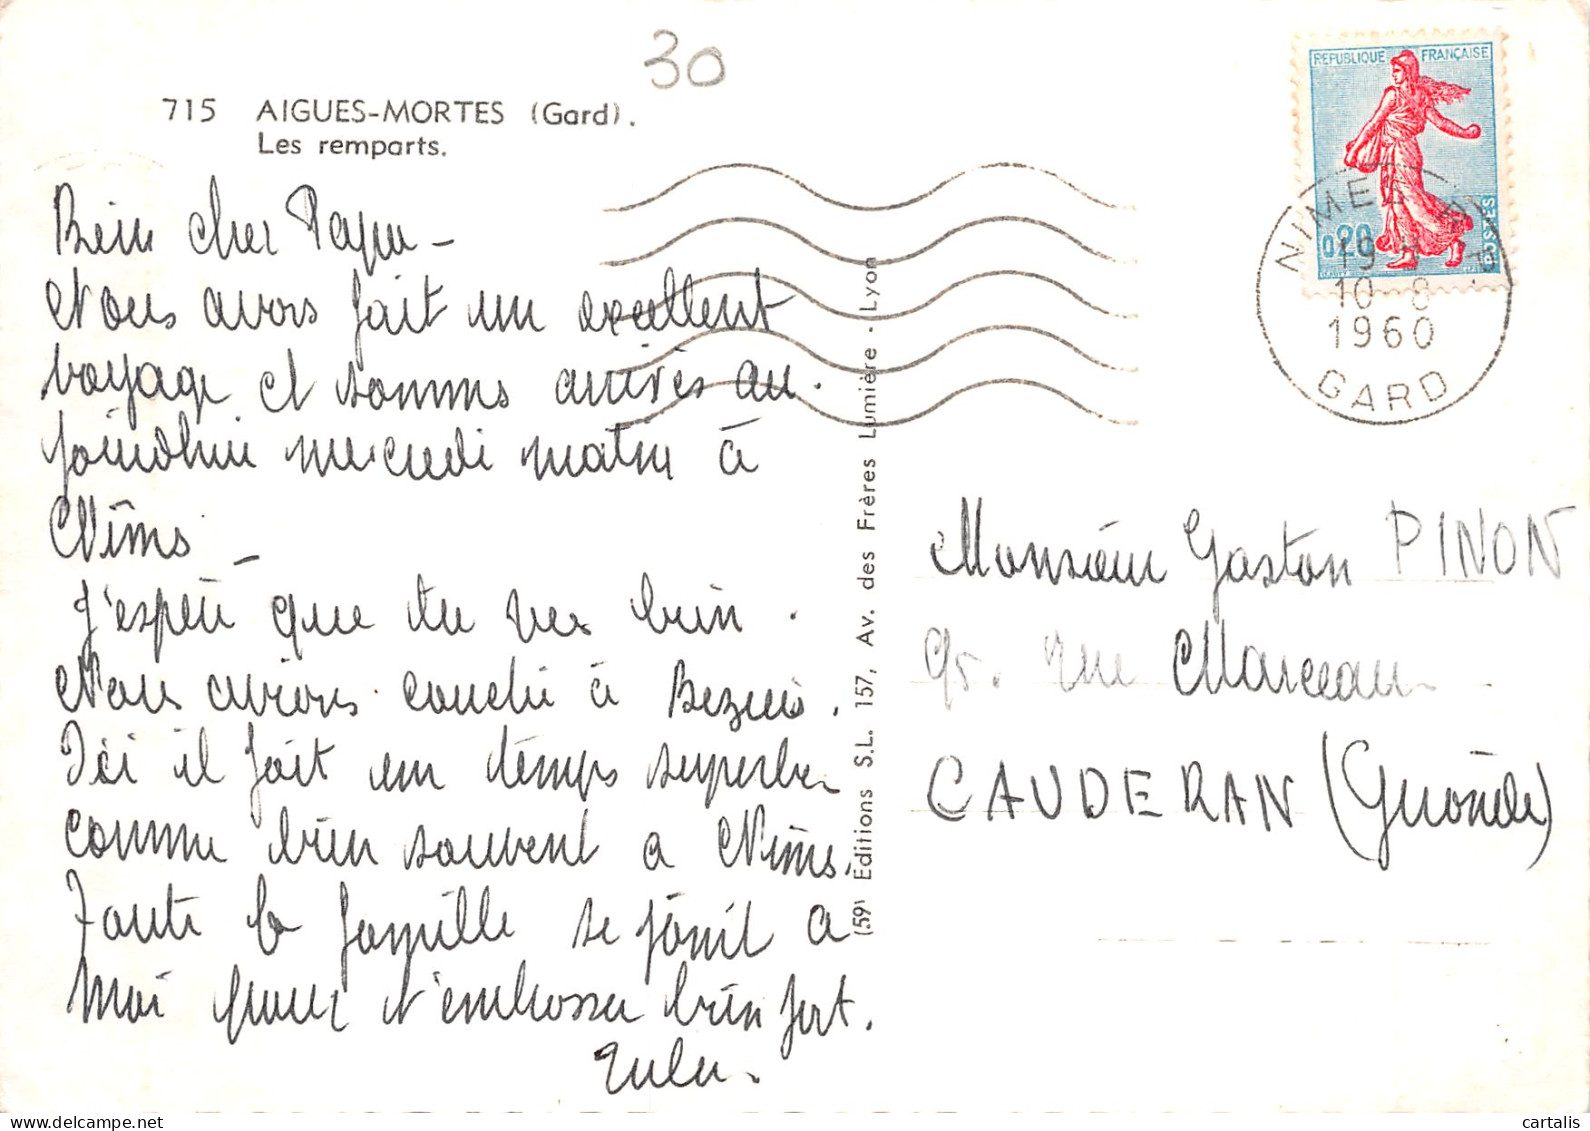 30
715 AIGUES-MORTES (Gard).
Les remparts.
REPUBLIQUE FRANÇAISE
0,20
POSTES
NIMES R.P.
19 H
10 - 8
1960
GARD
Bien cher Papa -
Nous avons fait un excellent
voyage et sommes arrivés au.
jourd'hui mercredi matin à
Nîmes -
J'espère que tu vas bien.
Nous avions couché à
Ici il fait un temps superbe
comme bien souvent a Nîmes.
Toute la famille se joint a
moi pour t'embrasser bien fort.
(59) Editions S.L. 157, Av. des Frères Lumière - Lyon
Monsieur Gaston PINON
95. rue Marceau
CAUDERAN (Gironde)
cartalis.com